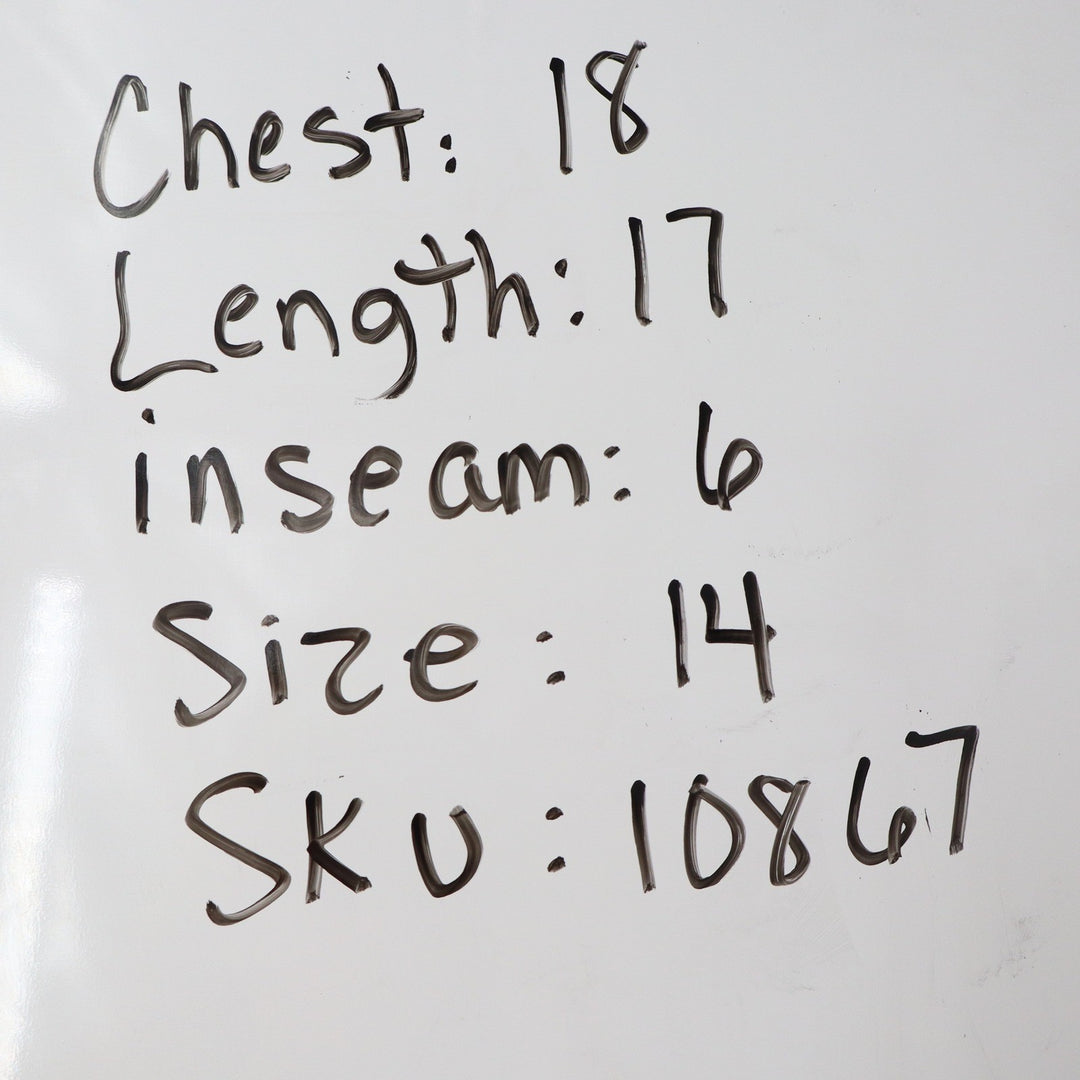 Chest: 18
Length: 17
inseam: 6
Size: 14
SKU: 10867